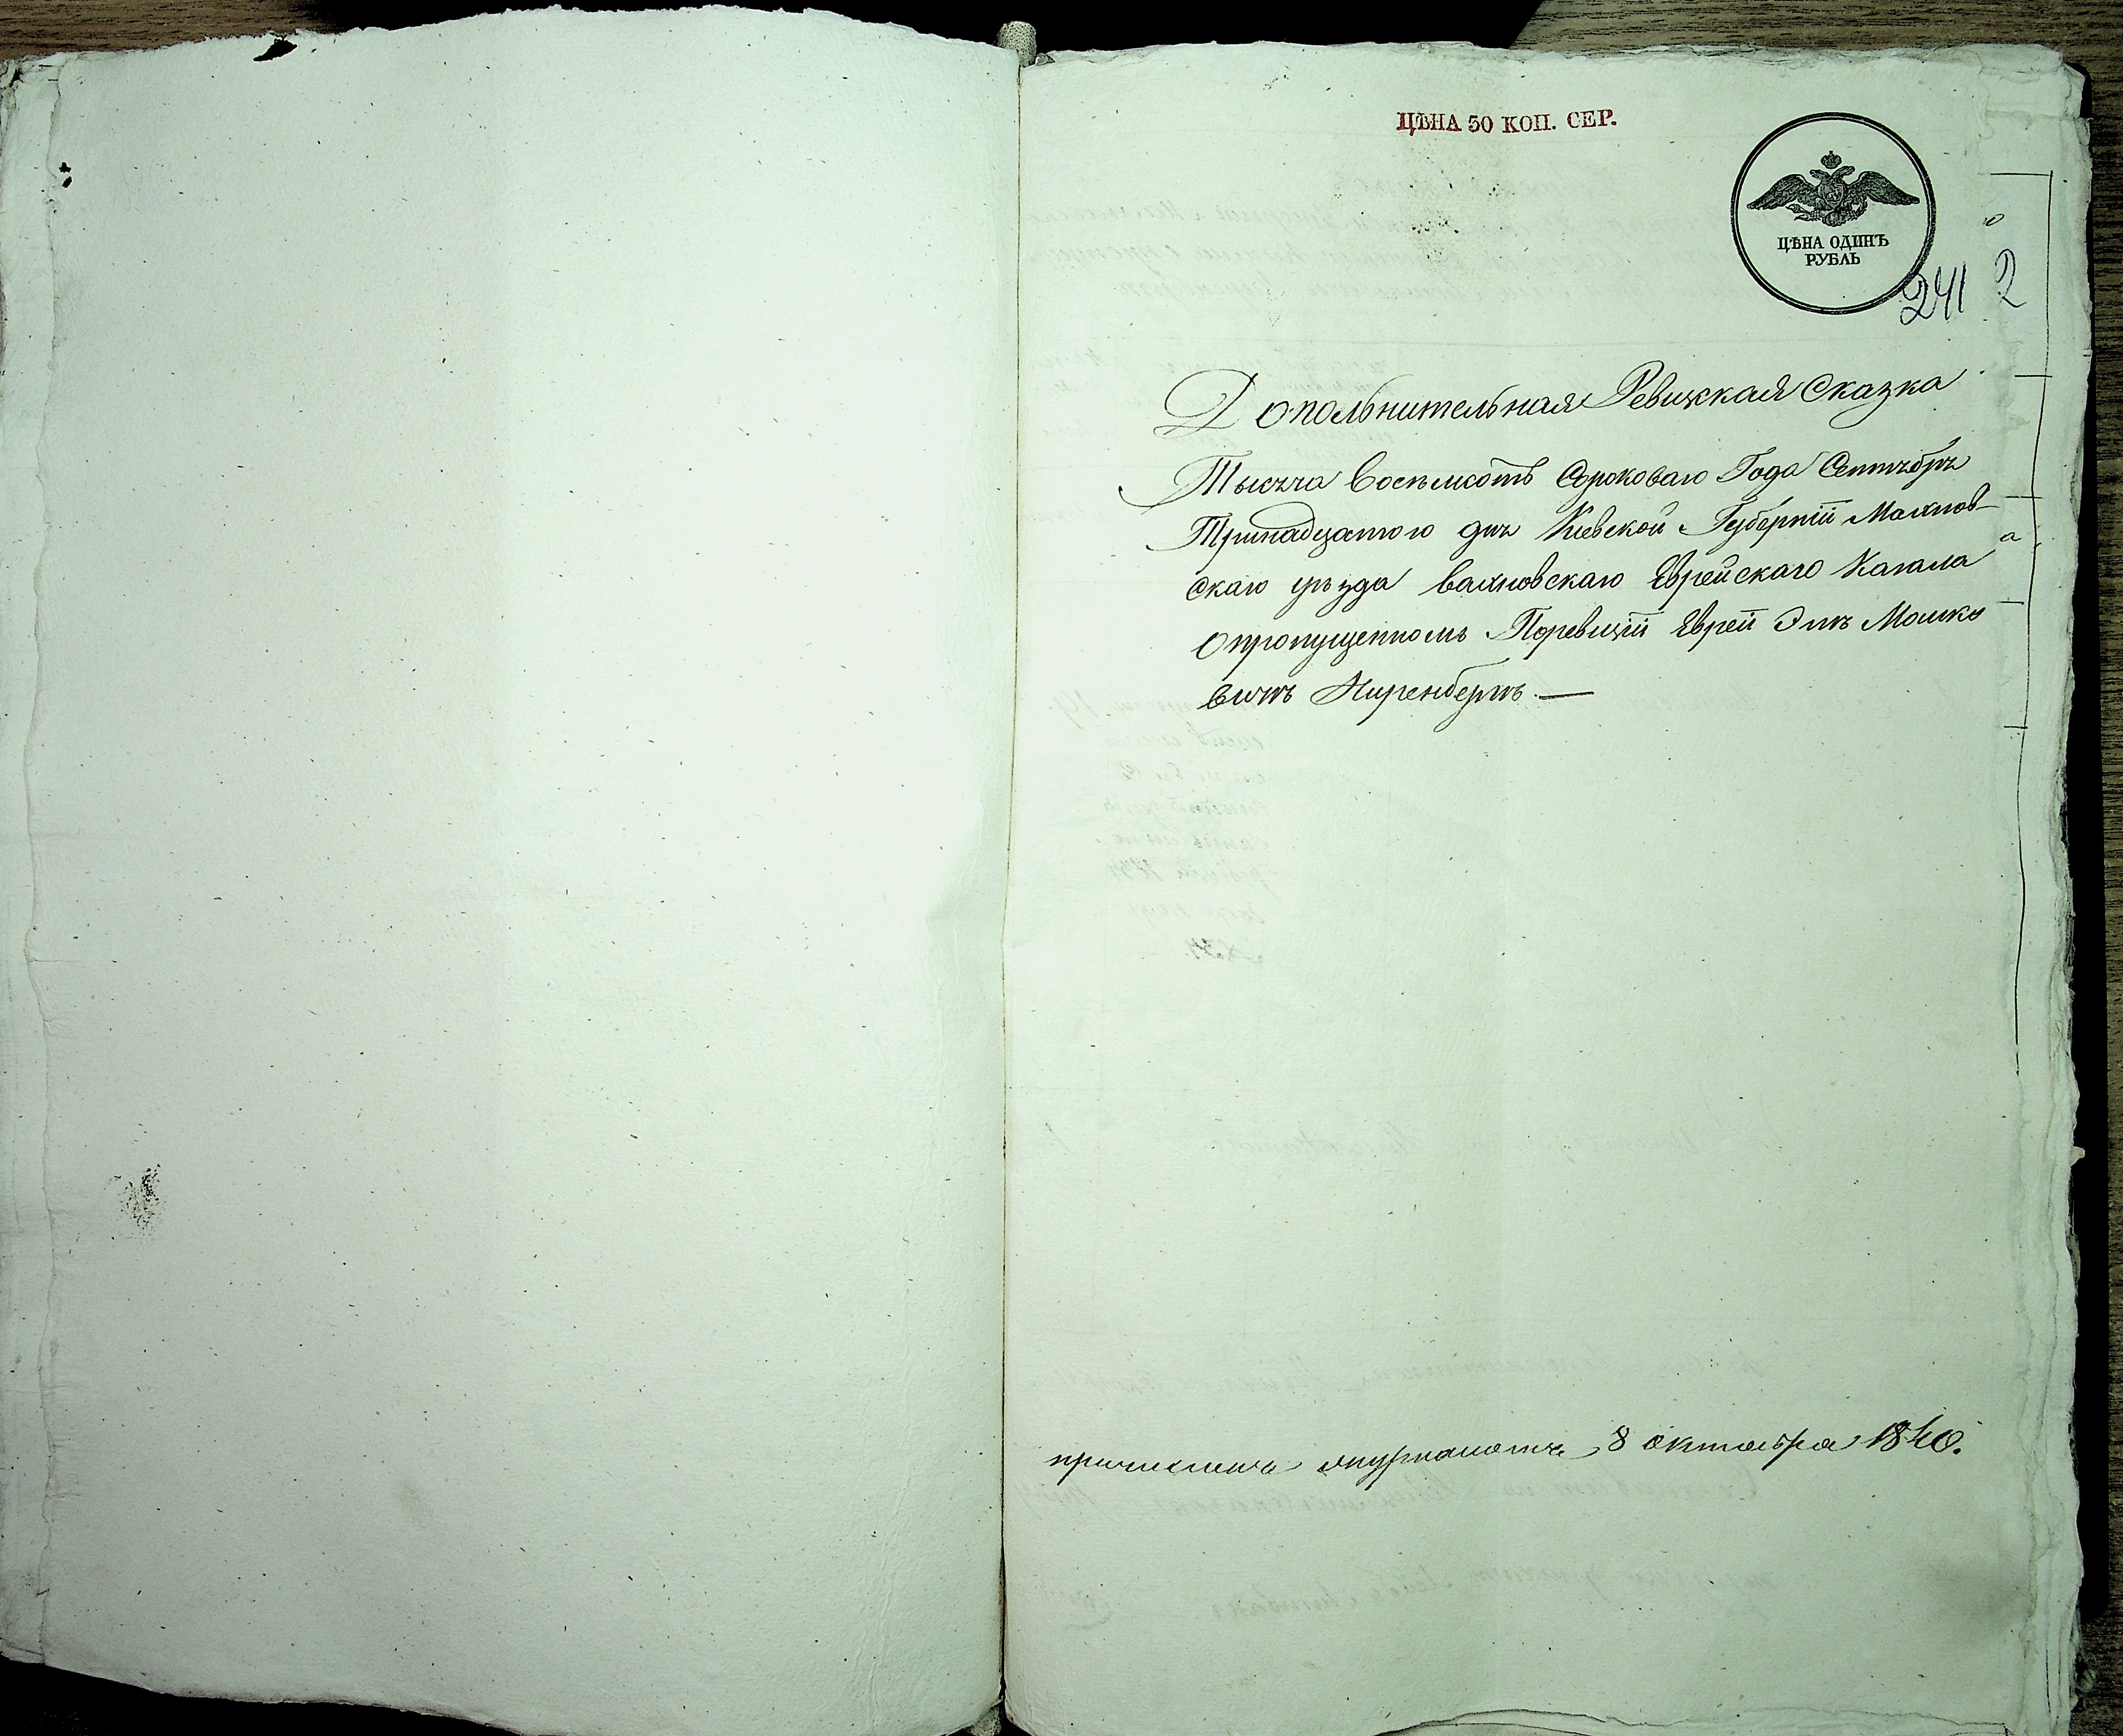 ЦѢНА 50 КОП. СЕР.
ЦѢНА ОДИНЪ
РУБЛЬ
241 2
Дополнительная Ревижкая Сказка
Тысяча Восемсотъ Сороковаго Года Сентября
Тринадцатого дня Киевской Губерніи Махнов-
скаго уѣзда Вахновскаго Еврейскаго Кагала
О пропущенномъ Поревизіи Еврей Мошко
вичъ Ниренбергъ. —
8 октября 1840.